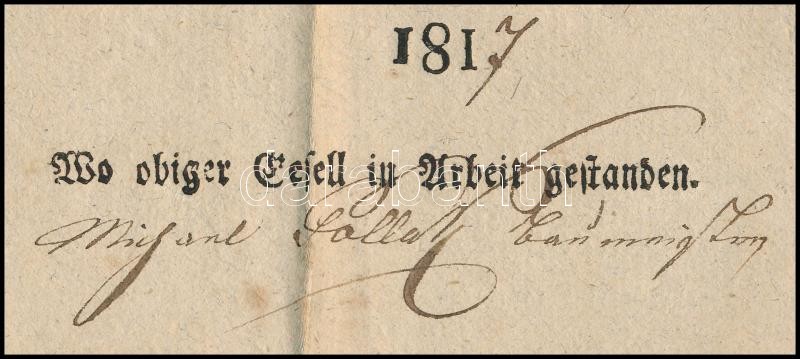 1817
Wo obiger Gesell in Arbeit gestanden.
Michael Pollak Baumeister
darabanth